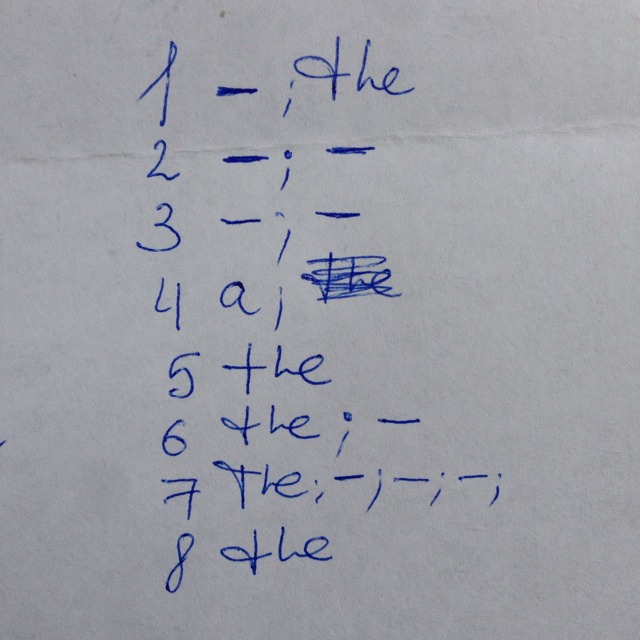 1 – ; the
2 – ; –
3 – ; –
4 a ;
5 the
6 the ; –
7 The ; – ; – ; – ;
8 the